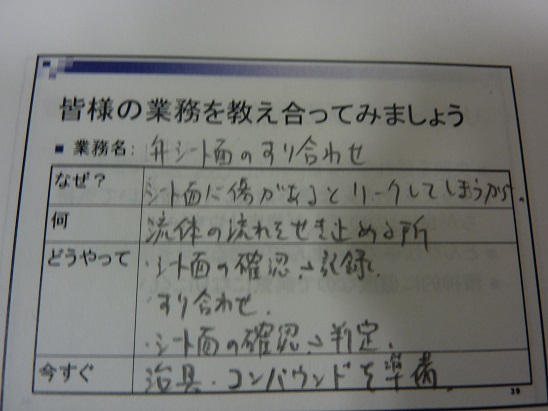 皆様の業務を教え合ってみましょう
■ 業務名: 弁シート面のすり合わせ
なぜ? シート面に傷があるとリークしてしまうから。
何 流体の流れをせき止める所
どうやって ・シート面の確認→記録.
・すり合わせ.
・シート面の確認→判定.
今すぐ 治具・コンパウンドを準備.
39